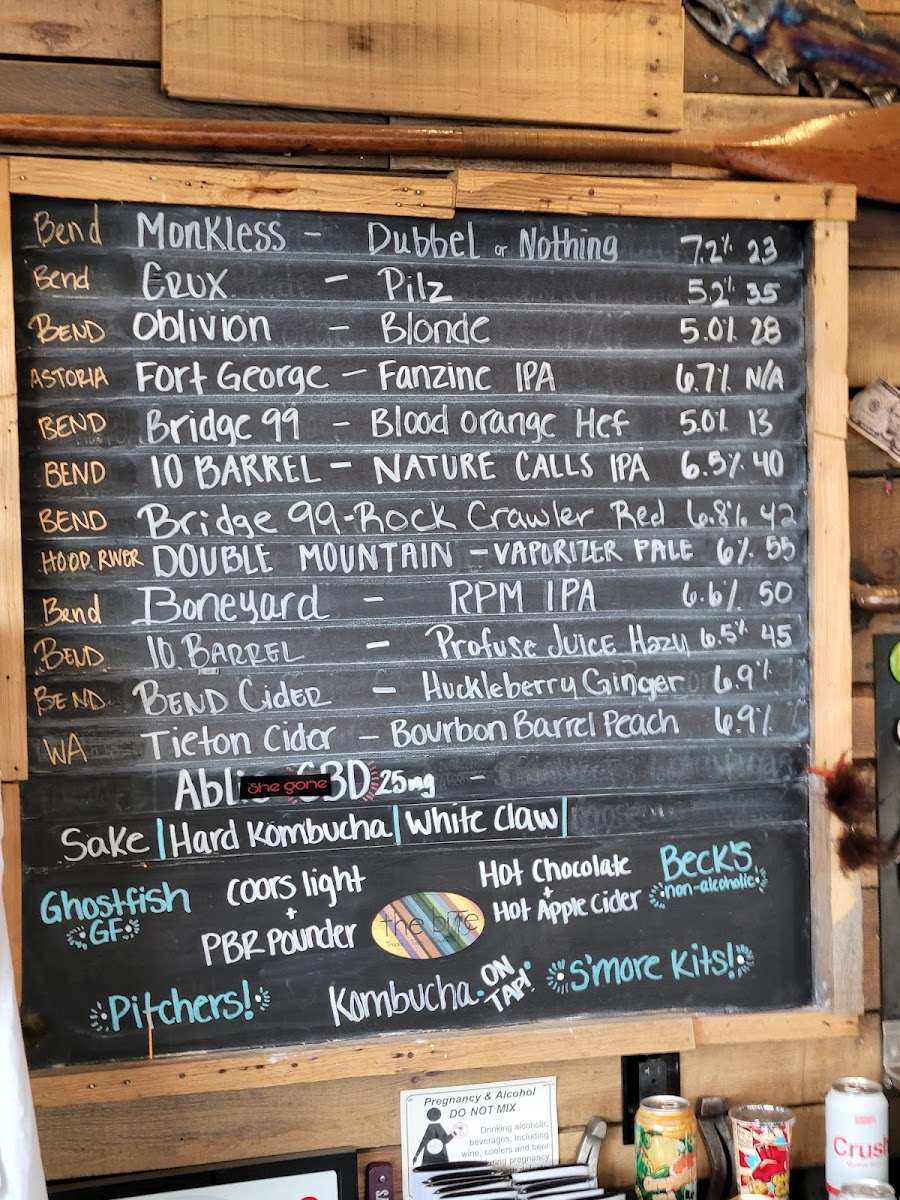 Bend Monkless - Dubbel or Nothing 7.2% 23
Bend Crux - Pilz 5.2% 35
BEND Oblivion - Blonde 5.0% 28
ASTORIA Fort George - Fanzine IPA 6.7% N/A
BEND Bridge 99 - Blood Orange Hef 5.0% 13
BEND 10 BARREL - NATURE CALLS IPA 6.5% 40
BEND Bridge 99 - Rock Crawler Red 6.8% 42
HOOD RIVER DOUBLE MOUNTAIN - VAPORIZER PALE 6% 55
Bend Boneyard - RPM IPA 6.6% 50
BEND 10 BARREL - Profuse Juice Hazy 6.5% 45
BEND BEND CIDER - Huckleberry Ginger 6.9%
WA Tieton Cider - Bourbon Barrel Peach 6.9%
she gone CBD 25mg -
Sake | Hard Kombucha | White Claw |
Ghostfish GF
Coors light + PBR Pounder
the bite
Hot Chocolate + Hot Apple Cider
Beck's non-alcoholic
Pitchers!
Kombucha ON TAP!
S'more Kits!
Pregnancy & Alcohol
DO NOT MIX
Drinking alcoholic
beverages, including
wine, coolers and beer
pregnancy
Crush